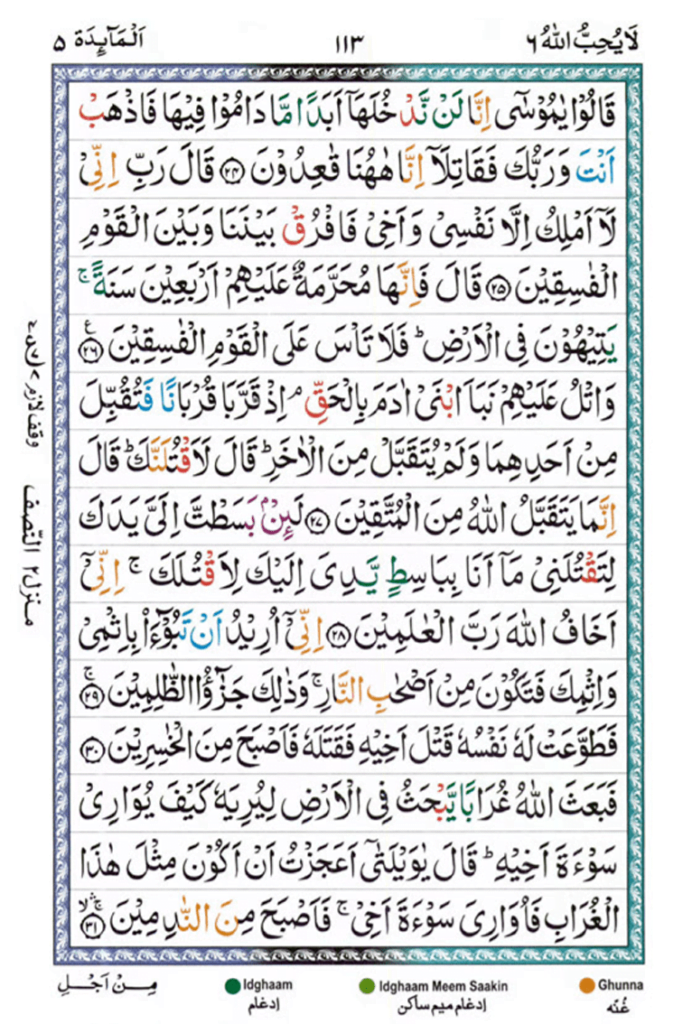 لَا يُحِبُّ اللّٰهُ ٦
١١٣
اَلْمَآىِٕدَة ٥
قَالُوْا يٰمُوْسٰۤى اِنَّا لَنْ نَّدْخُلَهَاۤ اَبَدًا مَّا دَامُوْا فِيْهَا فَاذْهَبْ
اَنْتَ وَرَبُّكَ فَقَاتِلَاۤ اِنَّا هٰهُنَا قٰعِدُوْنَ ۝٢٤ قَالَ رَبِّ اِنِّيْ
لَاۤ اَمْلِكُ اِلَّا نَفْسِيْ وَاَخِيْ فَافْرُقْ بَيْنَنَا وَبَيْنَ الْقَوْمِ
الْفٰسِقِيْنَ ۝٢٥ قَالَ فَاِنَّهَا مُحَرَّمَةٌ عَلَيْهِمْ اَرْبَعِيْنَ سَنَةً ۚ
يَتِيْهُوْنَ فِي الْاَرْضِ ؕ فَلَا تَاْسَ عَلَى الْقَوْمِ الْفٰسِقِيْنَ ۝٢٦ ع
وَاتْلُ عَلَيْهِمْ نَبَاَ ابْنَيْ اٰدَمَ بِالْحَقِّ ۘ اِذْ قَرَّبَا قُرْبَانًا فَتُقُبِّلَ
مِنْ اَحَدِهِمَا وَلَمْ يُتَقَبَّلْ مِنَ الْاٰخَرِ ؕ قَالَ لَاَقْتُلَنَّكَ ؕ قَالَ
اِنَّمَا يَتَقَبَّلُ اللّٰهُ مِنَ الْمُتَّقِيْنَ ۝٢٧ لَىِٕنْۢ بَسَطْتَّ اِلَيَّ يَدَكَ
لِتَقْتُلَنِيْ مَاۤ اَنَا بِبَاسِطٍ يَّدِيَ اِلَيْكَ لِاَقْتُلَكَ ۚ اِنِّيْۤ
اَخَافُ اللّٰهَ رَبَّ الْعٰلَمِيْنَ ۝٢٨ اِنِّيْۤ اُرِيْدُ اَنْ تَبُوْٓءَاۡ بِاِثْمِيْ
وَاِثْمِكَ فَتَكُوْنَ مِنْ اَصْحٰبِ النَّارِ ۚ وَذٰلِكَ جَزٰٓؤُا الظّٰلِمِيْنَ ۝٢٩ ۚ
فَطَوَّعَتْ لَهٗ نَفْسُهٗ قَتْلَ اَخِيْهِ فَقَتَلَهٗ فَاَصْبَحَ مِنَ الْخٰسِرِيْنَ ۝٣٠
فَبَعَثَ اللّٰهُ غُرَابًا يَّبْحَثُ فِي الْاَرْضِ لِيُرِيَهٗ كَيْفَ يُوَارِيْ
سَوْءَةَ اَخِيْهِ ؕ قَالَ يٰوَيْلَتٰۤى اَعَجَزْتُ اَنْ اَكُوْنَ مِثْلَ هٰذَا
الْغُرَابِ فَاُوَارِيَ سَوْءَةَ اَخِيْ ۚ فَاَصْبَحَ مِنَ النّٰدِمِيْنَ ۝٣١
وقف لازم
منزل ٢ النّصف
مِنْ اَجْلِ
Idghaam
إدغام
Idghaam Meem Saakin
إدغام ميم ساكن
Ghunna
غُنّه